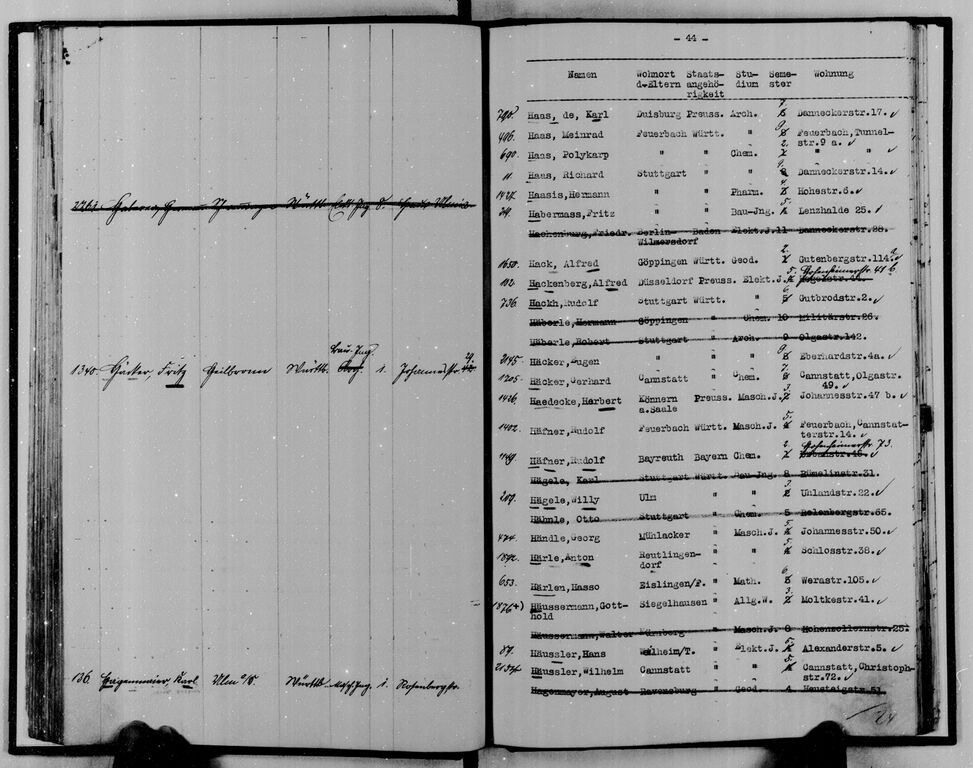 Hacker, Fritz Heilbronn Württb. 1. Johannesstr.
1340.
Bau-Ing.
29.
136. Hagenmaier, Karl Ulm a/D. Württb. Masch.Ing. 1. Rosenbergstr.
- 44 -
Namen Wohnort Staats- Stu- Seme- Wohnung
d.Eltern angehö- dium ster
rigkeit
790. Haas, de, Karl Duisburg Preuss. Arch. 7. Danneckerstr.17.
496. Haas, Meinrad Feuerbach Württ. " 9. Feuerbach,Tunnel-
str.9 a.
690. Haas, Polykarp " " Chem. 2. " "
11. Haas, Richard Stuttgart " " 9. Danneckerstr.14.
1427. Haasis,Hermann " " Pharm. 4. Hohestr.6.
Habermass,Fritz " " Bau-Jng. 5. Lenzhalde 25.
Hachenburg,Friedr. Berlin- Baden Elekt.J.11 Danneckerstr.28.
Wilmersdorf
1650. Hack, Alfred Göppingen Württ. Geod. 2. Gutenbergstr.114a.
102. Hackenberg,Alfred Düsseldorf Preuss. Elekt.J. 5. Hohenheimerstr. 41 b.
736. Hackh,Rudolf Stuttgart Württ. " 6. Gutbrodstr.2.
Häberle,Hermann Göppingen " Chem. 10 Militärstr.26.
Häberle,Robert Stuttgart " Arch. 9 Olgastr.142.
2145. Häcker,Eugen " " " 9. Eberhardstr.4a.
1205. Häcker,Gerhard Cannstatt " Chem. 7. Cannstatt,Olgastr.
49.
1426. Haedecke,Herbert Könnern Preuss. Masch.J. 3. Johannesstr.47 b.
a.Saale
1402. Häfner,Rudolf Feuerbach Württ. Masch.J. 5. Feuerbach,Cannstat-
terstr.14.
1149. Häfner,Rudolf Bayreuth Bayern Chem. 2. Hohenheimerstr. 73.
Hägele, Karl Stuttgart Württ. Bau-Jng. 8 Römelinstr.31.
209. Hägele,Willy Ulm " " 3. Uhlandstr.22.
Hähnle, Otto Stuttgart " Chem. 5 Relenbergstr.65.
474. Händle,Georg Mühlacker " Masch.J. 5. Johannesstr.50.
1892. Härle,Anton Reutlingen- " " 5. Schlosstr.38.
dorf
653. Härlen,Hasso Eislingen/F. " Math. 6. Werastr.105.
1876+) Häussermann,Gott- Siegelhausen " Allg.W. 3. Moltkestr.41.
hold
Häussermann,Walter Nürnberg " Masch.J. 8 Hohenzollernstr.25.
87. Häussler,Hans Weilheim/T. " Elekt.J. 5. Alexanderstr.5.
2134. Häussler,Wilhelm Cannstatt " " 5. Cannstatt,Christoph-
str.72.
Hagenmayer,August Ravensburg " Geod. 4 Heusteigstr.51
24